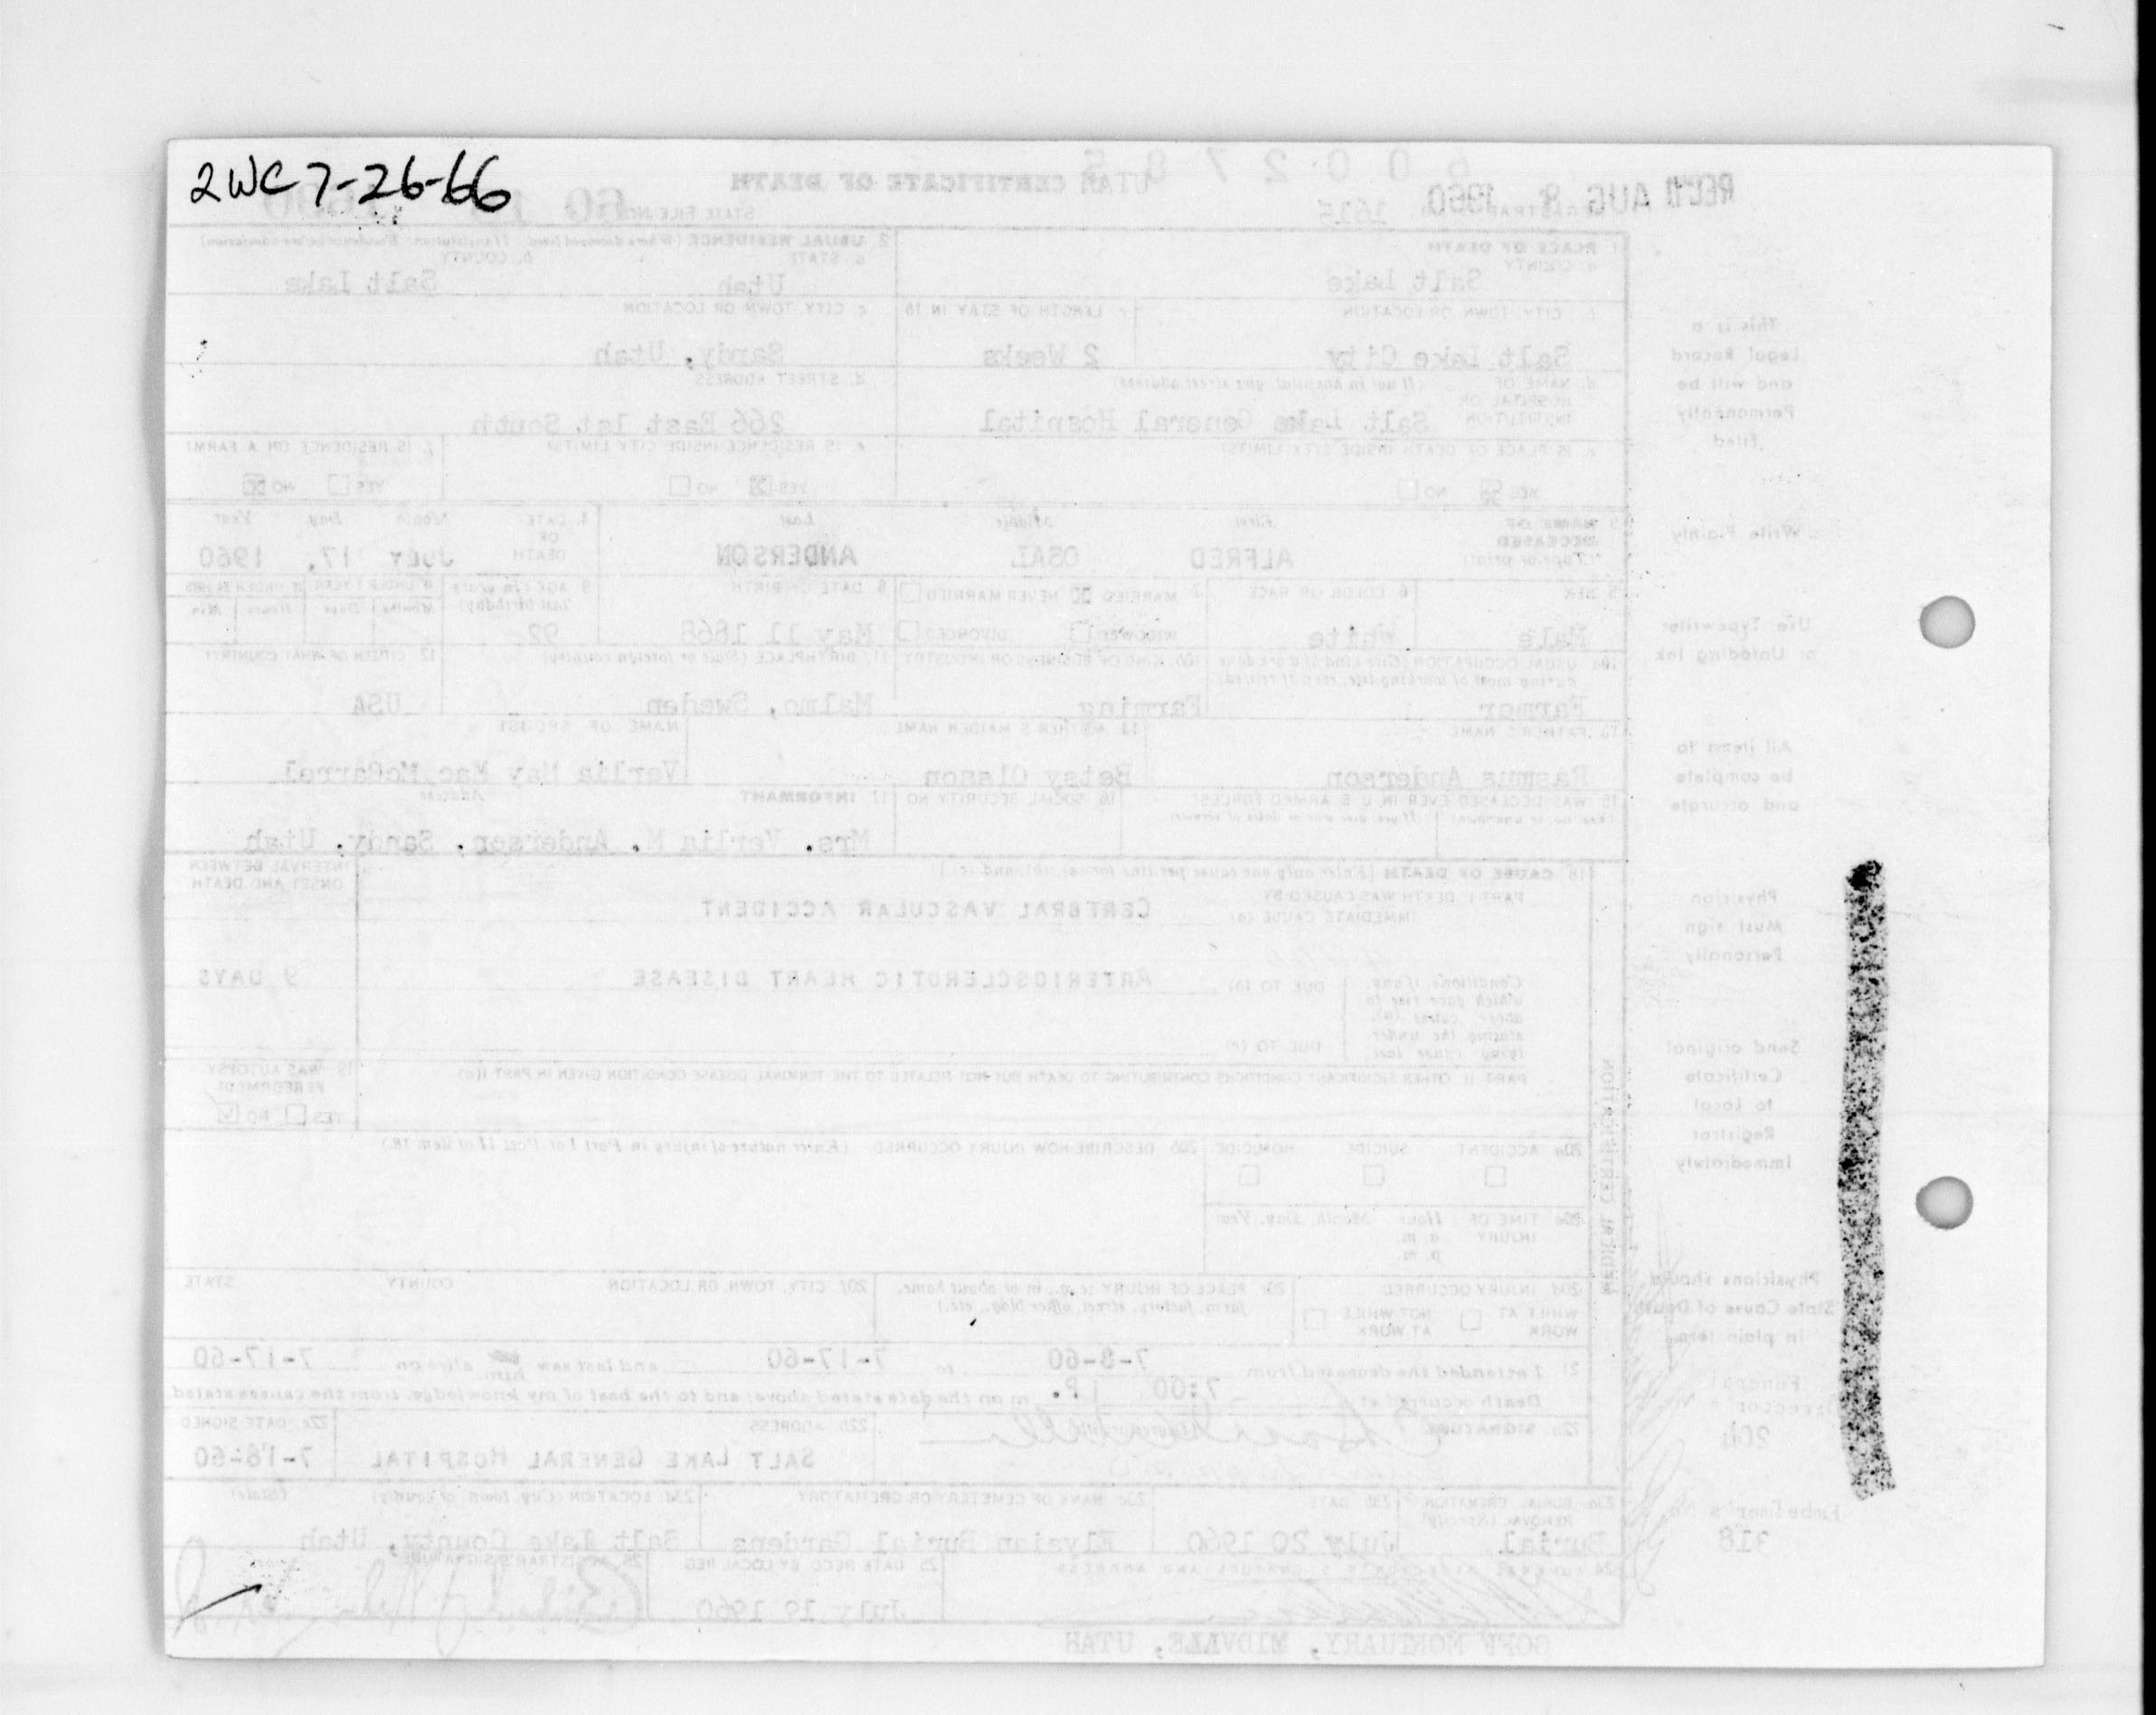 2WC 7-26-66
6002785
UTAH CERTIFICATE OF DEATH
REC'D AUG 8 1960
STATE FILE NO. 60 18
REGISTRAR'S NO. 1615
1. PLACE OF DEATH
a. COUNTY
Salt Lake
2. USUAL RESIDENCE (Where deceased lived. If institution: Residence before admission)
a. STATE
Utah
b. COUNTY
Salt Lake
b. CITY, TOWN OR LOCATION
Salt Lake City
c. LENGTH OF STAY IN 1b
2 Weeks
c. CITY, TOWN OR LOCATION
Sandy, Utah
d. NAME OF HOSPITAL OR INSTITUTION (If not in hospital, give street address)
Salt Lake General Hospital
d. STREET ADDRESS
266 East 1st South
e. IS PLACE OF DEATH INSIDE CITY LIMITS?
YES NO
e. IS RESIDENCE INSIDE CITY LIMITS?
YES NO
f. IS RESIDENCE ON A FARM?
YES NO
3. NAME OF DECEASED (Type or print)
First Middle Last
ALFRED OSAL ANDERSON
4. DATE OF DEATH
Month Day Year
JULY 17, 1960
5. SEX
Male
6. COLOR OR RACE
White
7. MARRIED NEVER MARRIED
WIDOWED DIVORCED
8. DATE OF BIRTH
May 11 1868
9. AGE (In years last birthday)
92
IF UNDER 1 YEAR
Months Days
IF UNDER 24 HRS
Hours Min
10a. USUAL OCCUPATION (Give kind of work done during most of working life, even if retired)
Farmer
10b. KIND OF BUSINESS OR INDUSTRY
Farming
11. BIRTHPLACE (State or foreign country)
Malmo, Sweden
12. CITIZEN OF WHAT COUNTRY?
USA
13. FATHER'S NAME
Rasmus Anderson
14. MOTHER'S MAIDEN NAME
Betsy Olsson
NAME OF SPOUSE
Verlia May Mac McCarrel
15. WAS DECEASED EVER IN U.S. ARMED FORCES?
(Yes, no, or unknown) (If yes, give war or dates of service)
16. SOCIAL SECURITY NO.
17. INFORMANT Address
Mrs. Verlia M. Anderson, Sandy, Utah
18. CAUSE OF DEATH [Enter only one cause per line for (a), (b), and (c).]
INTERVAL BETWEEN ONSET AND DEATH
PART I. DEATH WAS CAUSED BY:
IMMEDIATE CAUSE (a) CEREBRAL VASCULAR ACCIDENT
Conditions, if any, which gave rise to above cause (a), stating the underlying cause last.
DUE TO (b) ARTERIOSCLEROTIC HEART DISEASE 9 DAYS
DUE TO (c)
PART II. OTHER SIGNIFICANT CONDITIONS CONTRIBUTING TO DEATH BUT NOT RELATED TO THE TERMINAL DISEASE CONDITION GIVEN IN PART I(a)
19. WAS AUTOPSY PERFORMED?
YES NO
20a. ACCIDENT SUICIDE HOMICIDE
20b. DESCRIBE HOW INJURY OCCURRED. (Enter nature of injury in Part I or Part II of item 18)
20c. TIME OF INJURY Hour Month, Day, Year
a. m.
p. m.
20d. INJURY OCCURRED
WHILE AT WORK NOT WHILE AT WORK
20e. PLACE OF INJURY (e.g., in or about home, farm, factory, street, office bldg., etc.)
20f. CITY, TOWN, OR LOCATION COUNTY STATE
21. I attended the deceased from 7-8-60 to 7-17-60 and last saw him alive on 7-17-60
Death occurred at 7:00 P. m on the date stated above; and to the best of my knowledge, from the causes stated
22a. SIGNATURE
22b. ADDRESS
SALT LAKE GENERAL HOSPITAL
22c. DATE SIGNED
7-18-60
23a. BURIAL, CREMATION, REMOVAL (Specify)
Burial
23b. DATE
July 20 1960
23c. NAME OF CEMETERY OR CREMATORY
Elysian Burial Gardens
23d. LOCATION (City, town, or county) (State)
Salt Lake County, Utah
24. FUNERAL DIRECTOR'S SIGNATURE AND ADDRESS
GOFF MORTUARY, MIDVALE, UTAH
25. DATE RECD BY LOCAL REG.
July 19 1960
26. REGISTRAR'S SIGNATURE
MEDICAL CERTIFICATION
This is a
Legal Record
and will be
Permanently
Filed.
Write Plainly
Use Typewriter
or Unfading Ink
All items to
be complete
and accurate
Physician
Must sign
Personally
Send original
Certificate
to Local
Registrar
Immediately
Physicians should
State Cause of Death
in plain terms
Funeral
Director's No.
204
Embalmer's No.
318